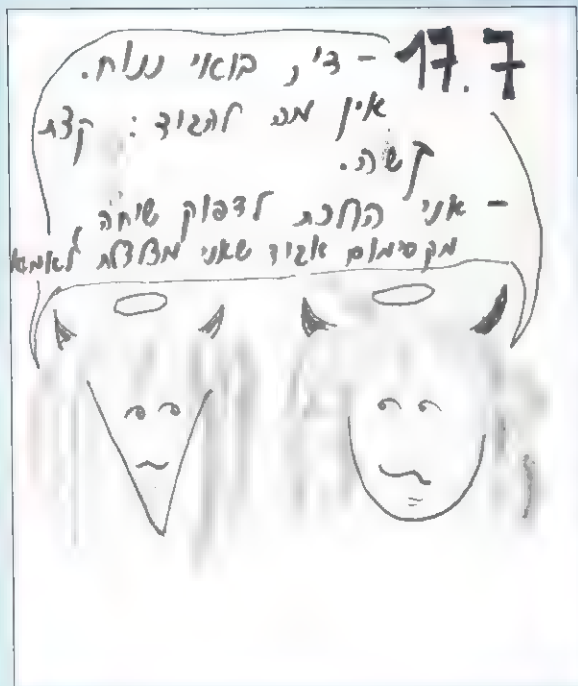 17.7
- די, בואי ננוח.
אין מה להגיד: קצת
קשה.
- אני הולכת לדפוק שיחה,
מקסימום אגיד שאני מצלצלת לאמא